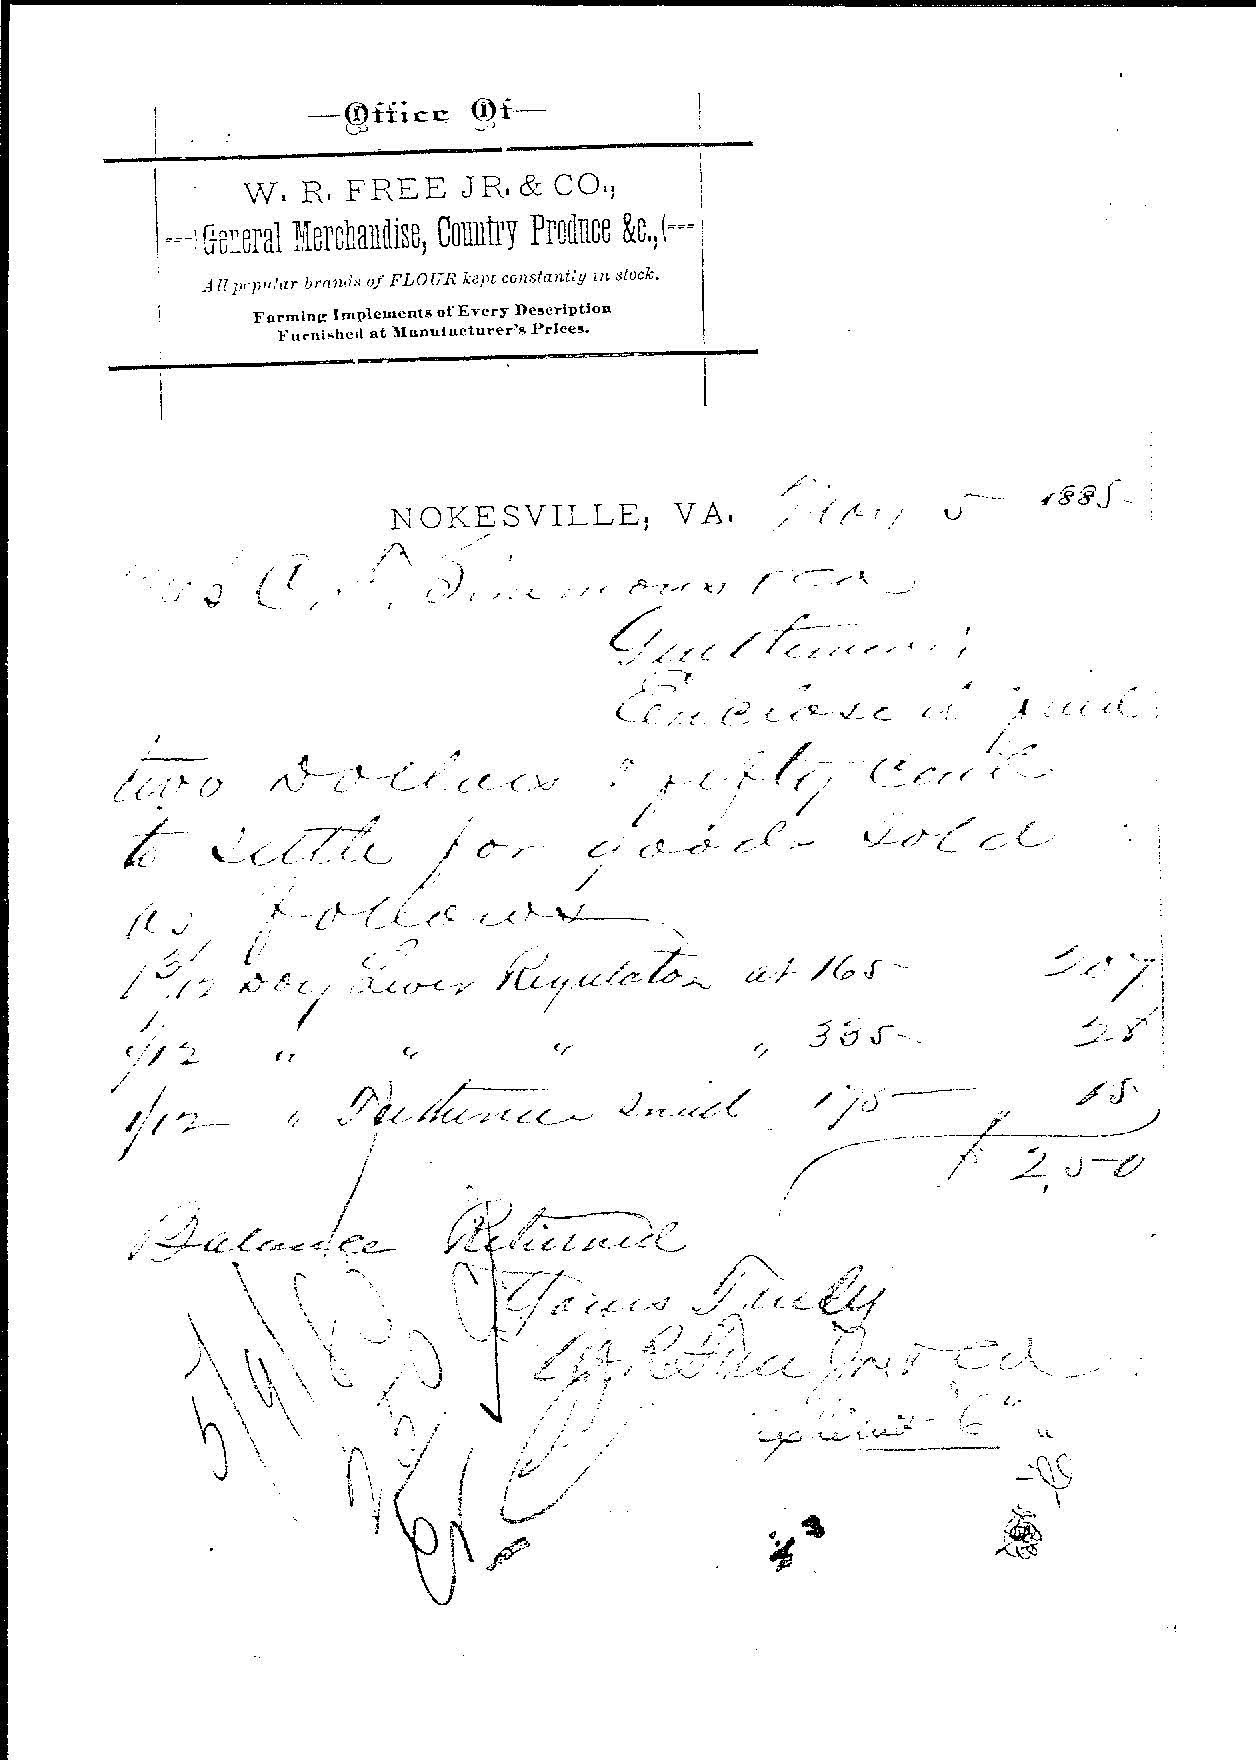 —Office Of—
W. R. FREE JR. & CO.,
General Merchandise, Country Produce &c.,
All popular brands of FLOUR kept constantly in stock.
Farming Implements of Every Description
Furnished at Manufacturer's Prices.
NOKESVILLE, VA. May 5 1885
C. F. Simmons & Co
Gentlemen;
Enclose d find
two Dollars & fifty cents
to settle for goods sold
as follows
1 3/12 Doz Liver Regulator at 165 207
1/12 " " " " 335 28
1/12 " Pertuna Small 175 15
$ 2.50
Balance Returned
Yours Truly
W R Free Jr & Co
Exhibit "C"
5/9/85